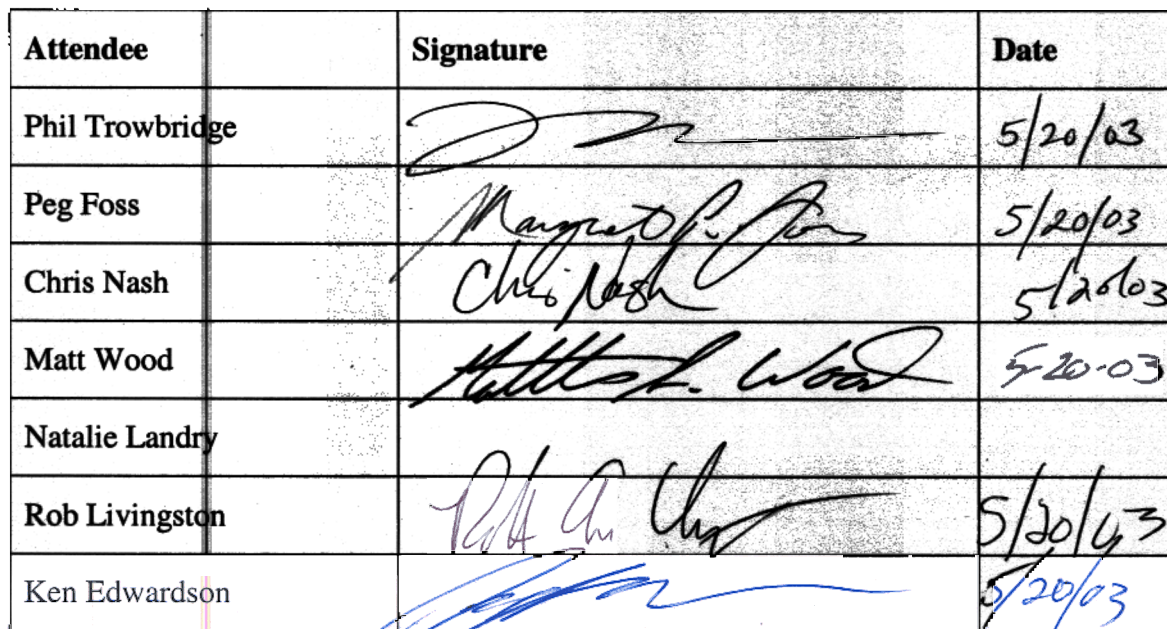 Attendee Signature Date
Phil Trowbridge 5/20/03
Peg Foss Margaret P. Foss 5/20/03
Chris Nash Chris Nash 5/20/03
Matt Wood Matthew A. Wood 5-20-03
Natalie Landry
Rob Livingston 5/20/03
Ken Edwardson 5/20/03